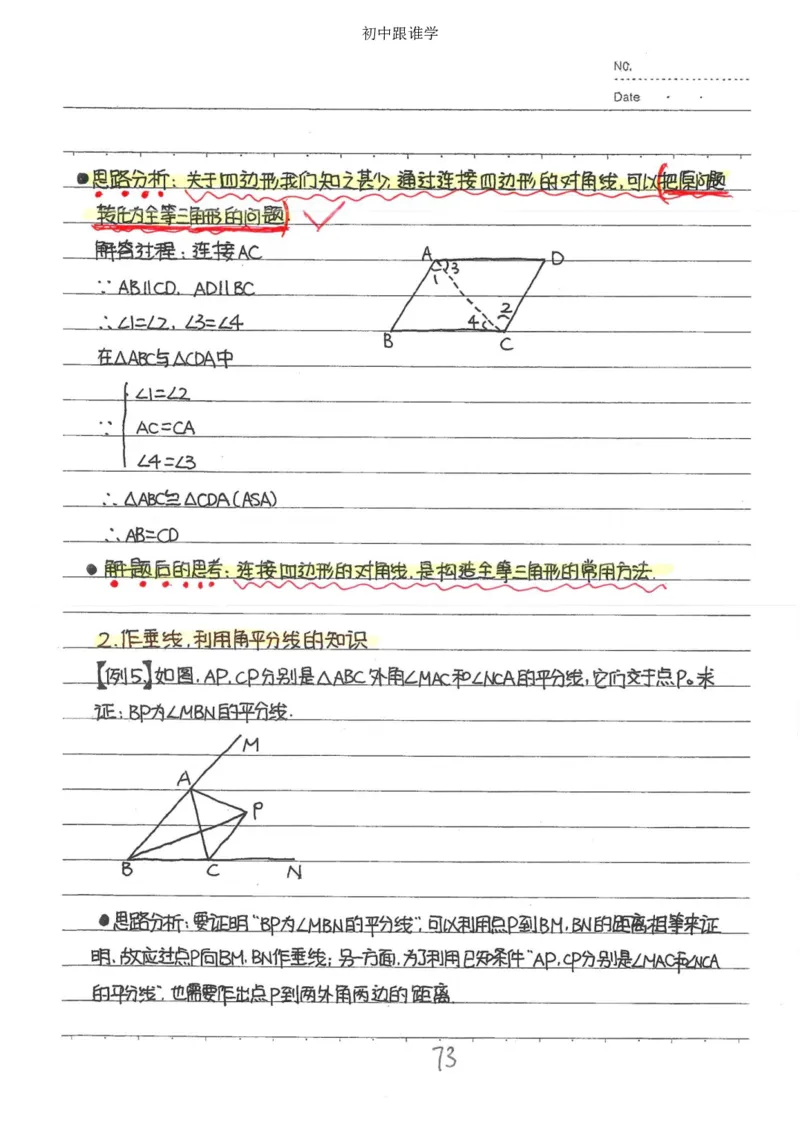 初中跟谁学
NO.
Date
●思路分析：关于四边形我们知之甚少,通过连接四边形的对角线,可以(把原问题
转化为全等三角形的问题) ✓
解答过程：连接AC
∵AB∥CD, AD∥BC
∴∠1=∠2, ∠3=∠4
在△ABC与△CDA中
∠1=∠2
∵ AC=CA
∠4=∠3
∴△ABC≌△CDA(ASA)
∴AB=CD
A
D
3
1
2
4
B
C
●解题后的思考：连接四边形的对角线,是构造全等三角形的常用方法.
2.作垂线,利用角平分线的知识
【例5】如图,AP,CP分别是△ABC外角∠MAC和∠NCA的平分线,它们交于点P。求
证：BP为∠MBN的平分线.
M
A
P
B
C
N
●思路分析：要证明“BP为∠MBN的平分线”,可以利用点P到BM,BN的距离相等来证
明,故应过点P向BM,BN作垂线；另一方面,为了利用已知条件“AP,CP分别是∠MAC和∠NCA
的平分线”,也需要作出点P到两外角两边的距离.
73